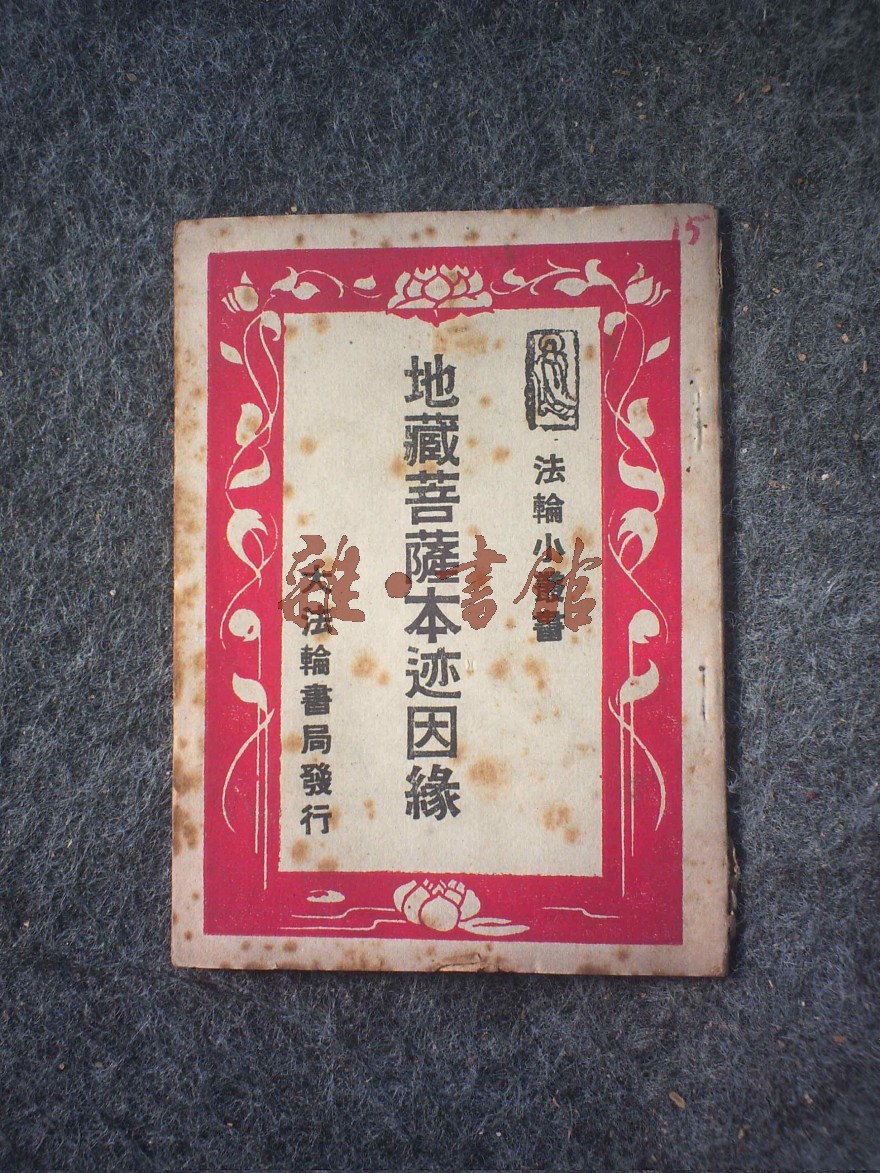 15
法輪小叢書
地藏菩薩本迹因緣
大法輪書局發行
雜·書館